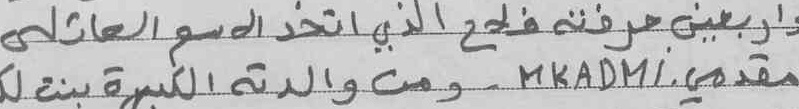 واربعين حرفته فلاح الذي اتخذ الاسم العائلي
مقدمي. MKADMI - ومن والدته الكبيرة بنت